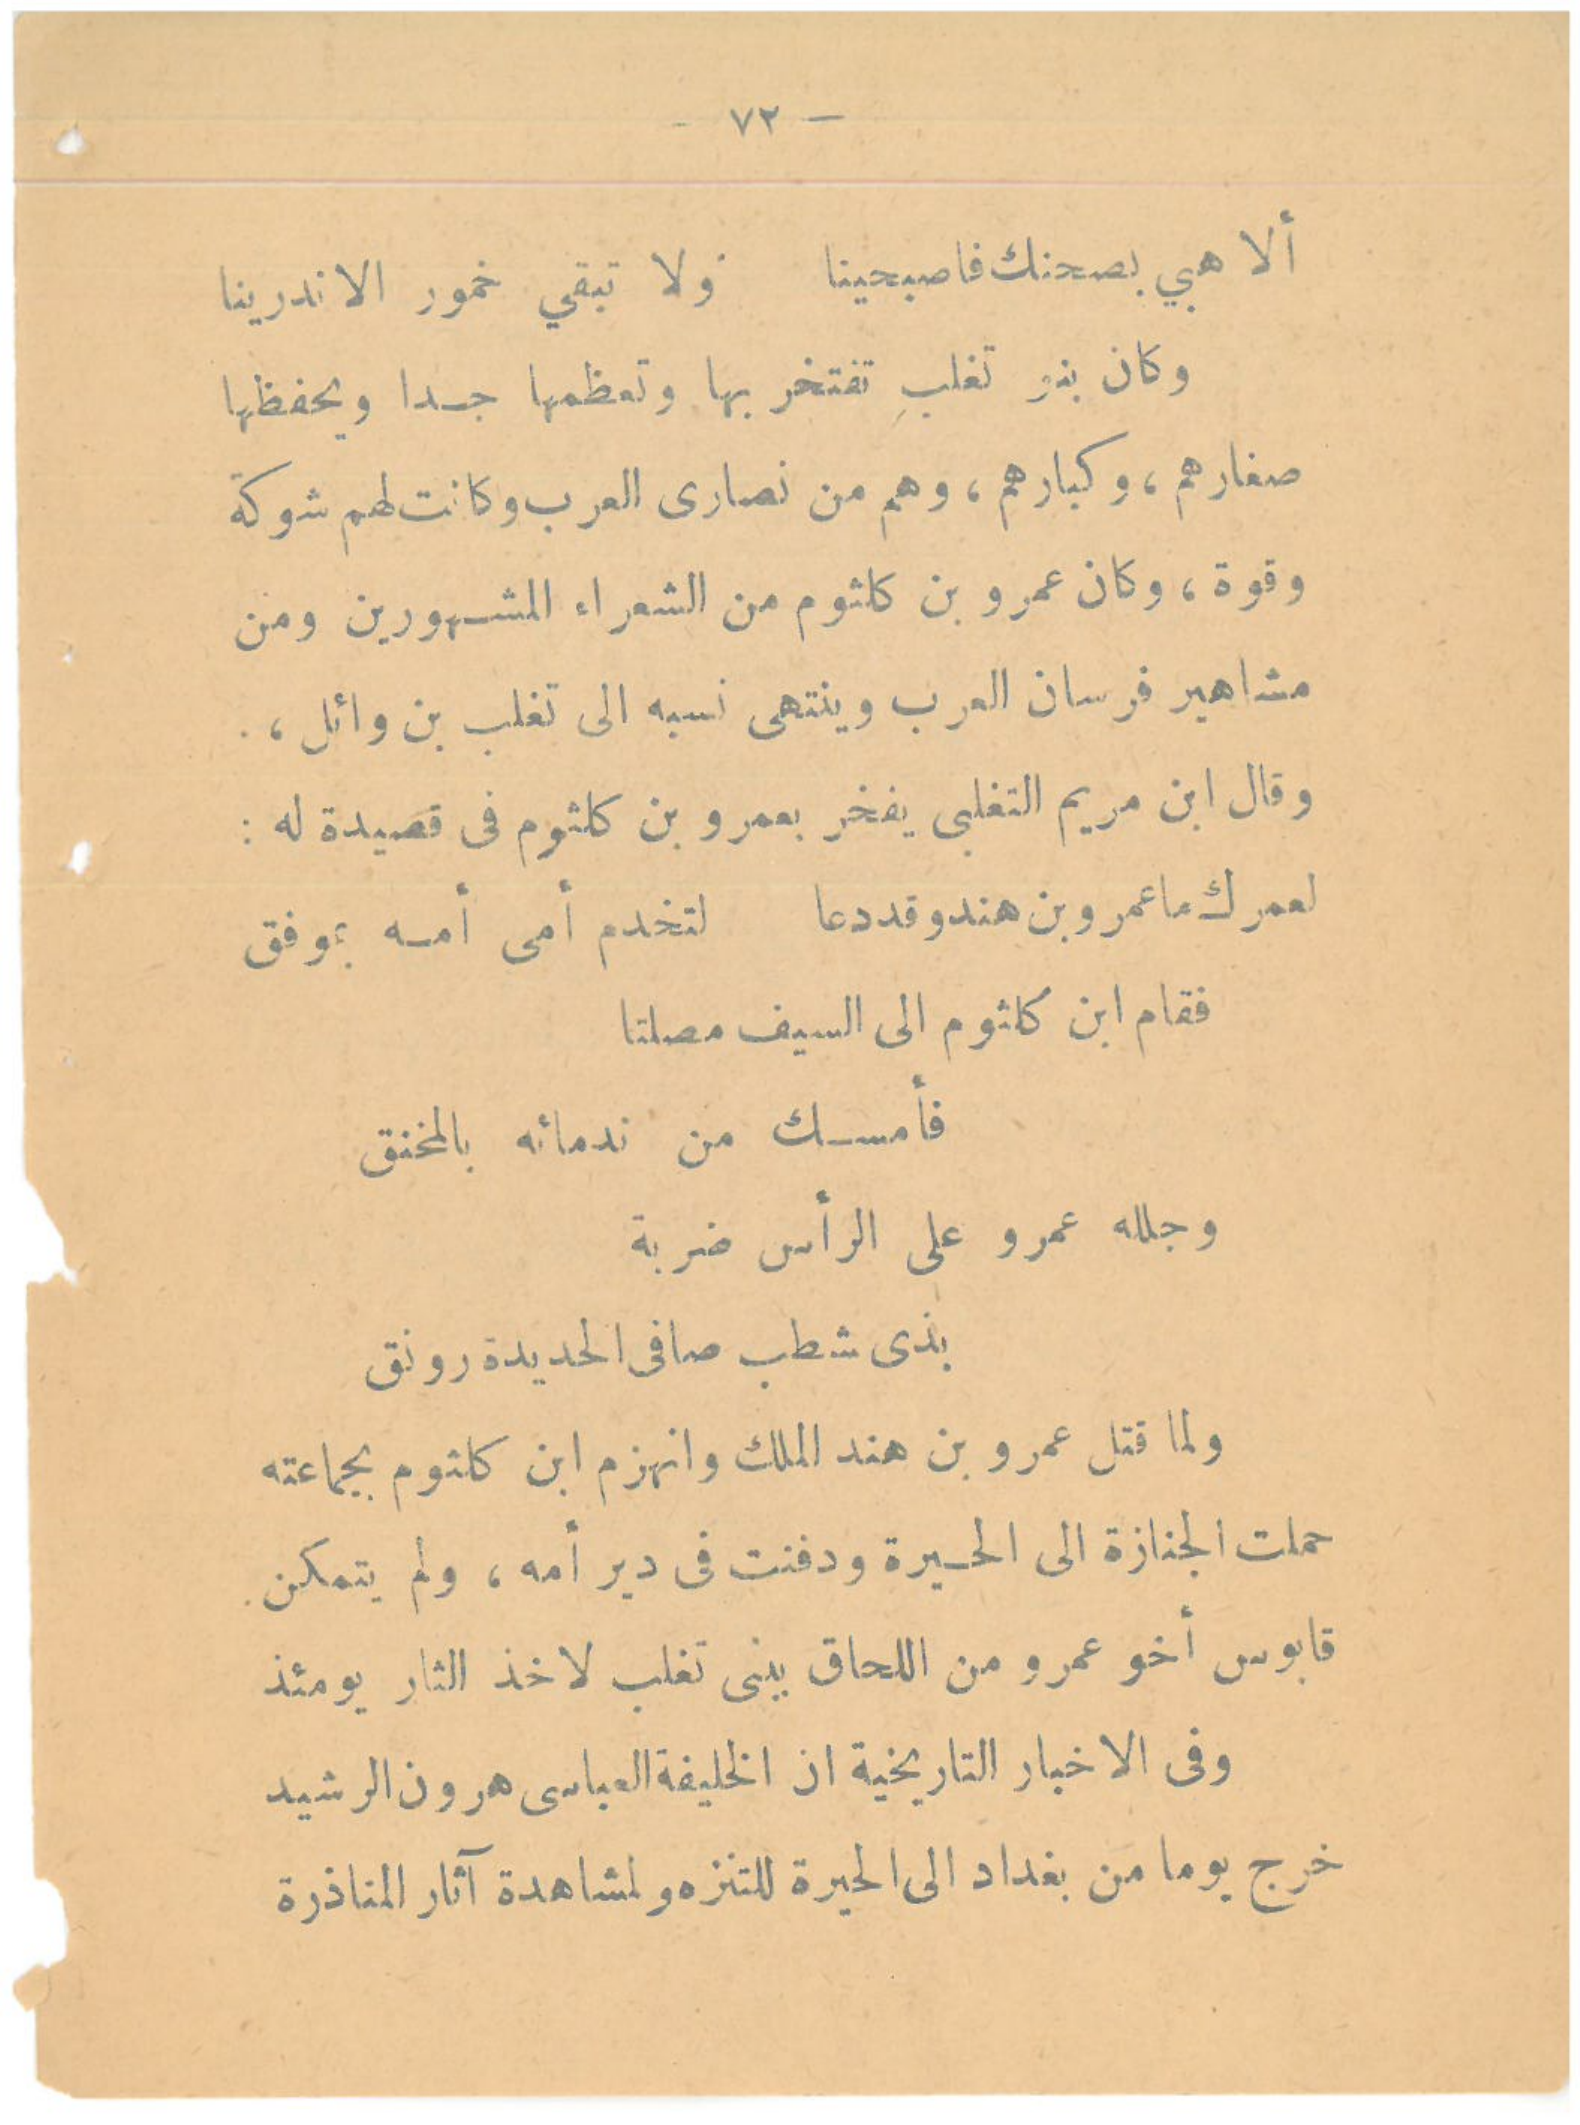 — ٧٢ -
ألا هبي بصحنك فاصبحينا ولا تبقي خمور الاندرينا
وكان بنو تغلب تفتخر بها وتعظمها جدا ويحفظها
صغارهم ، وكبارهم ، وهم من نصارى العرب وكانت لهم شوكة
وقوة ، وكان عمرو بن كلثوم من الشعراء المشهورين ومن
مشاهير فرسان العرب وينتهى نسبه الى تغلب بن وائل ، .
وقال ابن مريم التغلبى يفخر بعمرو بن كلثوم فى قصيدة له :
لعمرك ما عمرو بن هند وقد دعا لتخدم أمى أمه بموفق
فقام ابن كلثوم الى السيف مصلتا
فأمسك من ندمائه بالمخنق
وجلله عمرو على الرأس ضربة
بذى شطب صافى الحديدة رونق
ولما قتل عمرو بن هند الملك وانهزم ابن كلثوم بجماعته
حملت الجنازة الى الحيرة ودفنت فى دير أمه ، ولم يتمكن .
قابوس أخو عمرو من اللحاق ببنى تغلب لاخذ الثار يومئذ
وفى الاخبار التاريخية ان الخليفة العباسى هرون الرشيد
خرج يوما من بغداد الى الحيرة للتنزه ولمشاهدة آثار المناذرة